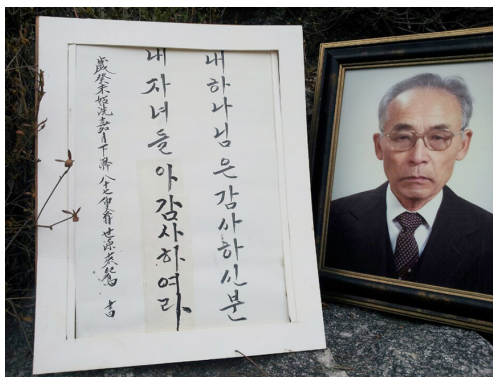 내 하나님은 감사하신분
내 자녀들아 감사하여라
歲癸未姑洗嘉月下澣八十七 世源 書